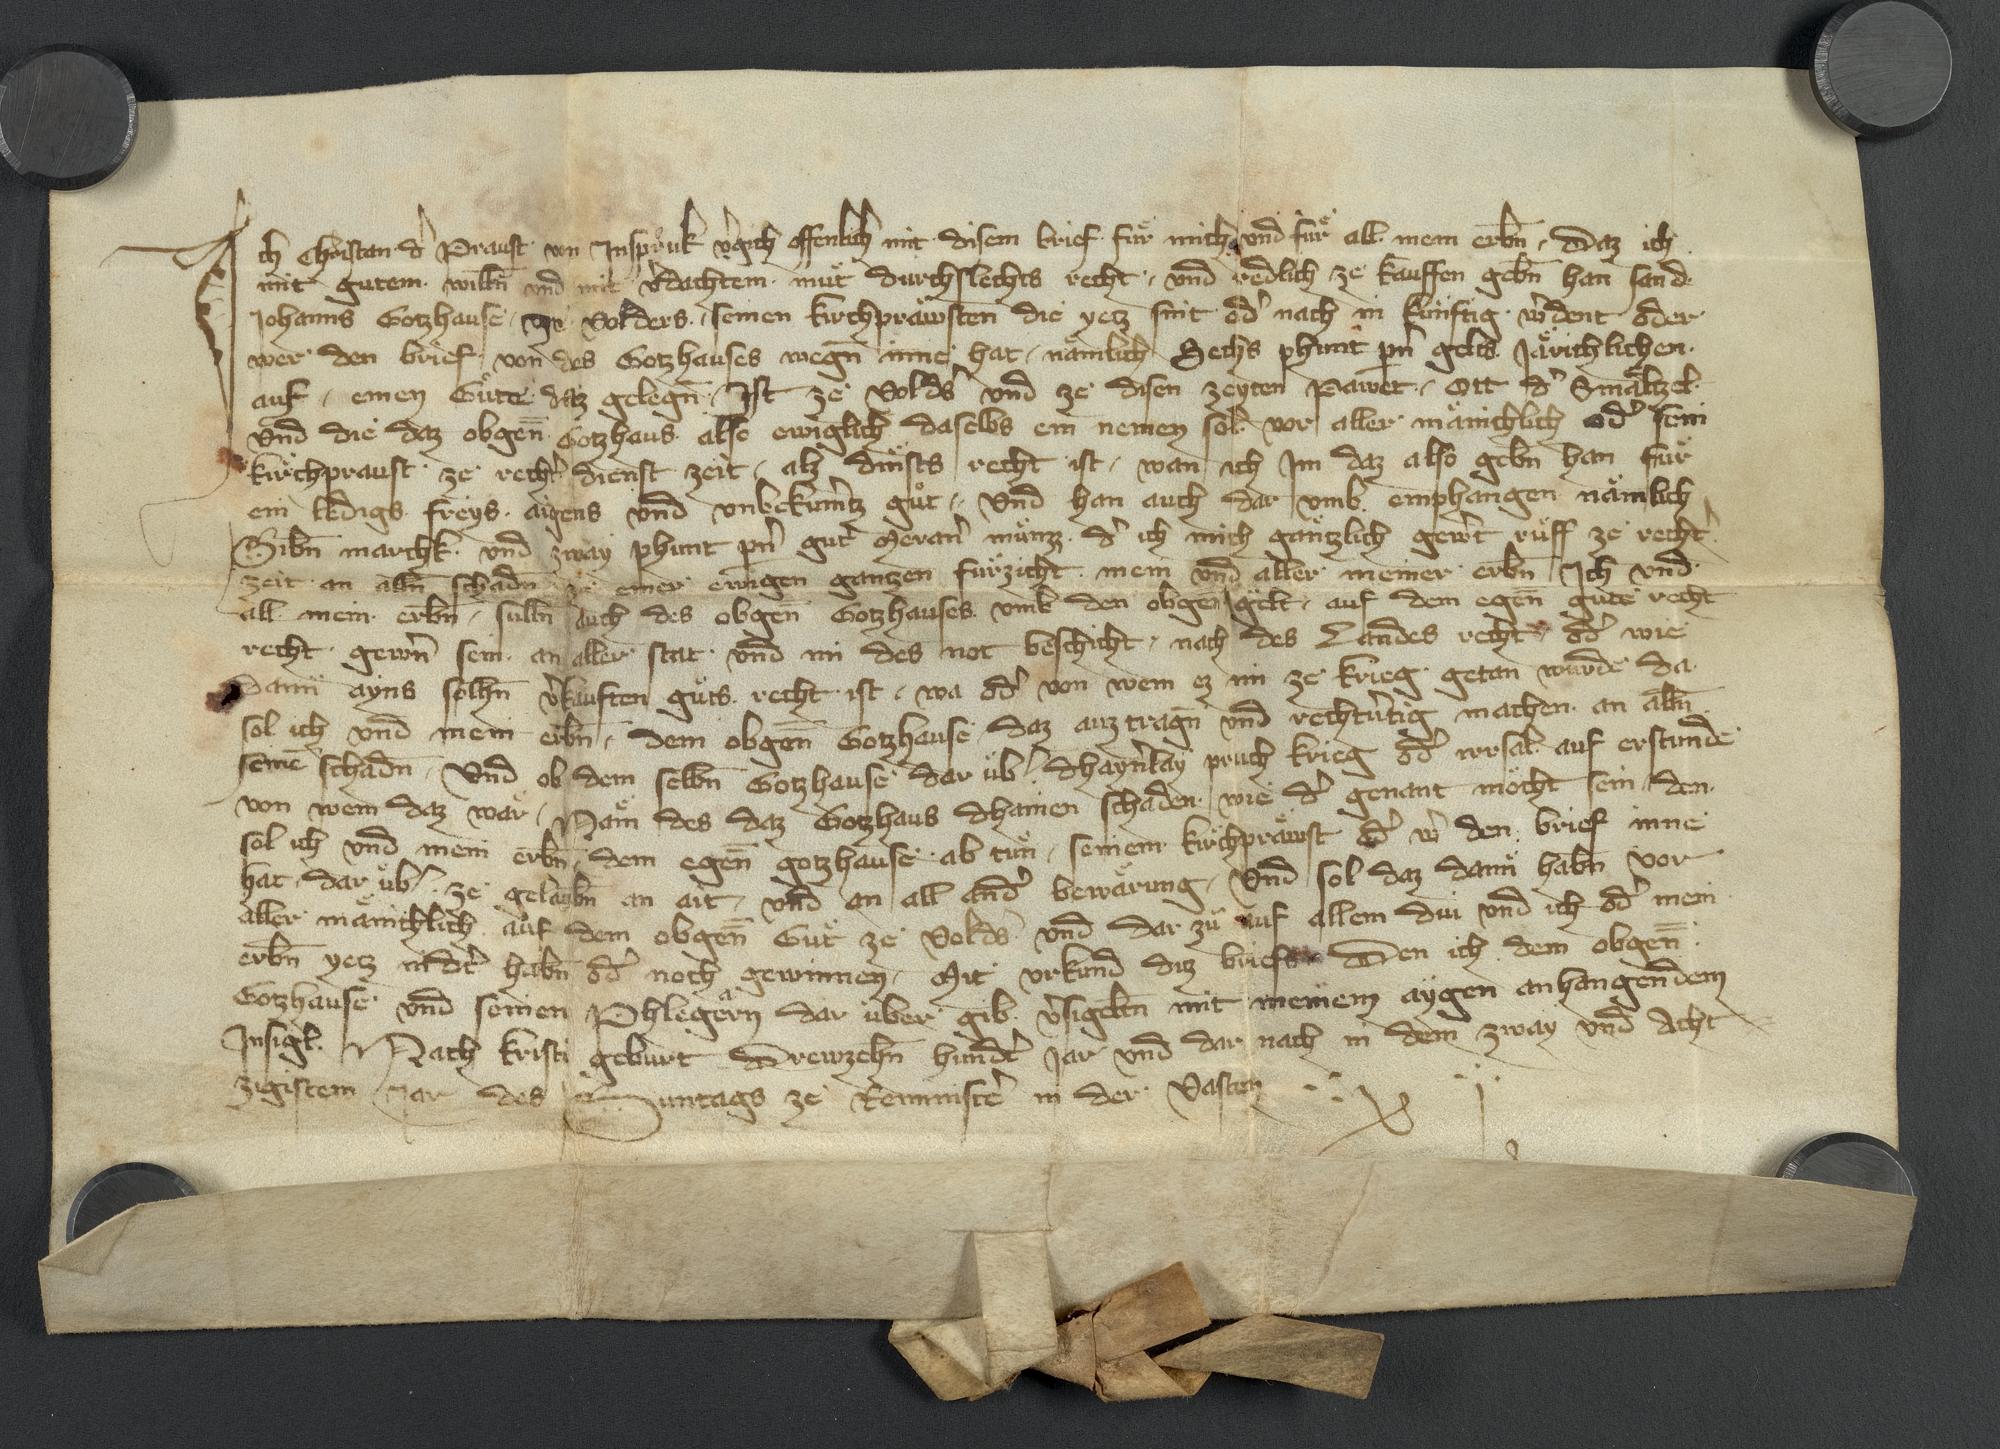 Ich Christan d' Praust von Insprůk v'gich offenlich mit disem brief für mich vnd für all mein erbn̄ / Daz ich
mit gutem willn̄ vnd mit v'dachtem můt durchslechts recht / vnd redlich ze kauffen gebn̄ han sand
Johanns Gotzhause von Volders / seinen kirchpräwsten die yetz sint od' nach in künftig w'dent oder
wer den brief von des Gotzhauses wegn̄ inne hat / nämlich Sechs phunt pn' gelts Järichlichen
auf / einen Gůte daz gelegn̄ Ist ze Volds' vnd ze disen zeyten Pawet / Ott d' Smältzel
vnd die daz obgen̄ Gotzhaus also ewiglich daselbs ein nemen sol vor aller mänichlich od' sein
kirchpraust ze recht' dienst zeit / alz dinsts recht ist / wan ich Im daz also gebn̄ han für
ein ledigs freys aigens vnd vnbekumertz gůt / Vnd han auch dar vmb emphangen nämlich
Sibn̄ marchk vnd zway phunt pn' gut' Meran' münzz d' ich mich gäntzlich gew't rüff ze recht'
zeit an alln̄ schadn̄ ze einer ewigen gantzen fürzicht mein vnd aller meiner erbn̄ Ich vnd
all mein erbn̄ / sulln̄ auch des obgen̄ Gotzhauses vmb den obgen̄ gelt / auf dem egen̄ gůte recht
recht gewern̄ sein an aller stat vnd in des not beschicht / nach des Landes recht od' wie
dann ayns solhn̄ v'kauften gůts recht ist / wa od' von wem ez in ze krieg getan würde da
sol ich vnd mein erbn̄ / dem obgen̄ Gotzhause daz auz tragn̄ vnd rechtu'tig machen an alln̄
seinē schadn̄ / Vnd ob dem selbn̄ Gotzhause dar üb' dhayn'lay pruch krieg od' irrsal auf erstunde
von wem daz wär / Näm des daz Gotzhaus dhainen schaden wie d' genant möcht sein den
sol ich vnd mein erbn̄ / dem egen̄ gotzhause ab tůn / seinem kirchpräwst od' w' den brief inne
hat / dar üb' ze gelaubn̄ an ait / vnd an all and' bewärung / Vnd sol daz dann habn̄ vor
aller mänichlich auf dem obgen̄ Gůt ze Volds' vnd dar zů auf allem diu vnd ich od' mein
erbn̄ yetz indt' habn̄ od' noch gewinnen / Mit vrkund ditz briefs Den ich dem obgen̄
Gotzhause vnd seinen Phlegern dar über gib v'sigeltn̄ mit meinem aygen anhangendem
Insigl. Nach kristi geburt Drewzehn̄ hund't Jar vnd dar nach in dem zway vnd Acht
zigistem Jar des Suntags ze Reminiscē in der Vasten